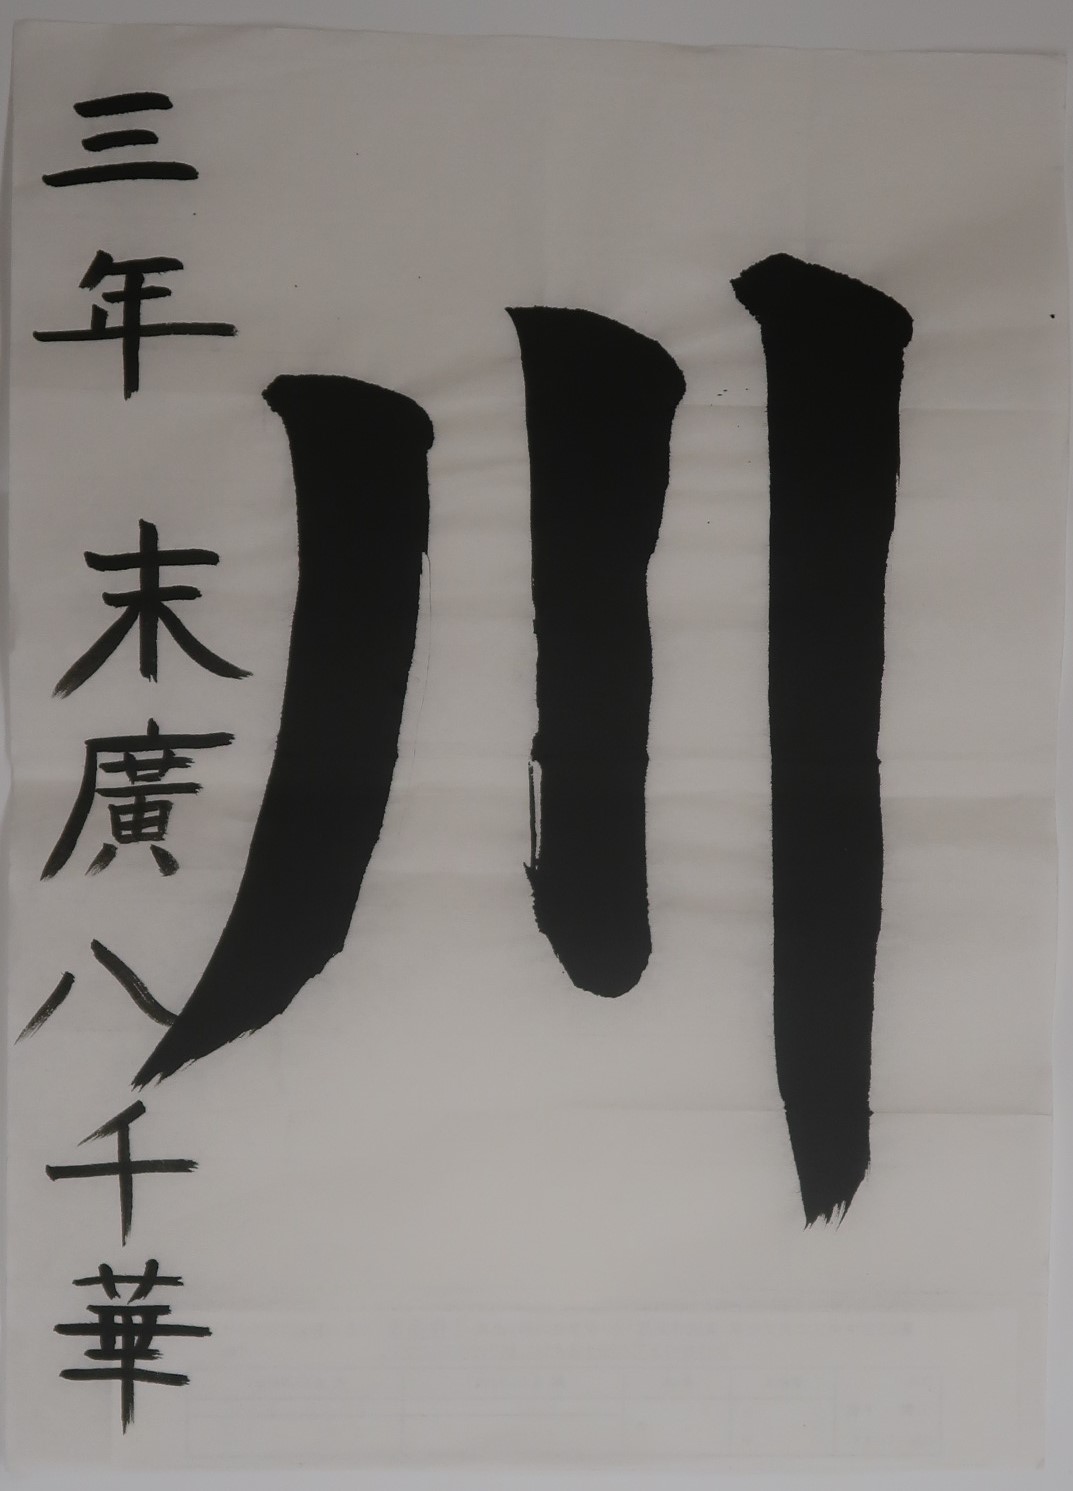 川
三年 末廣八千華